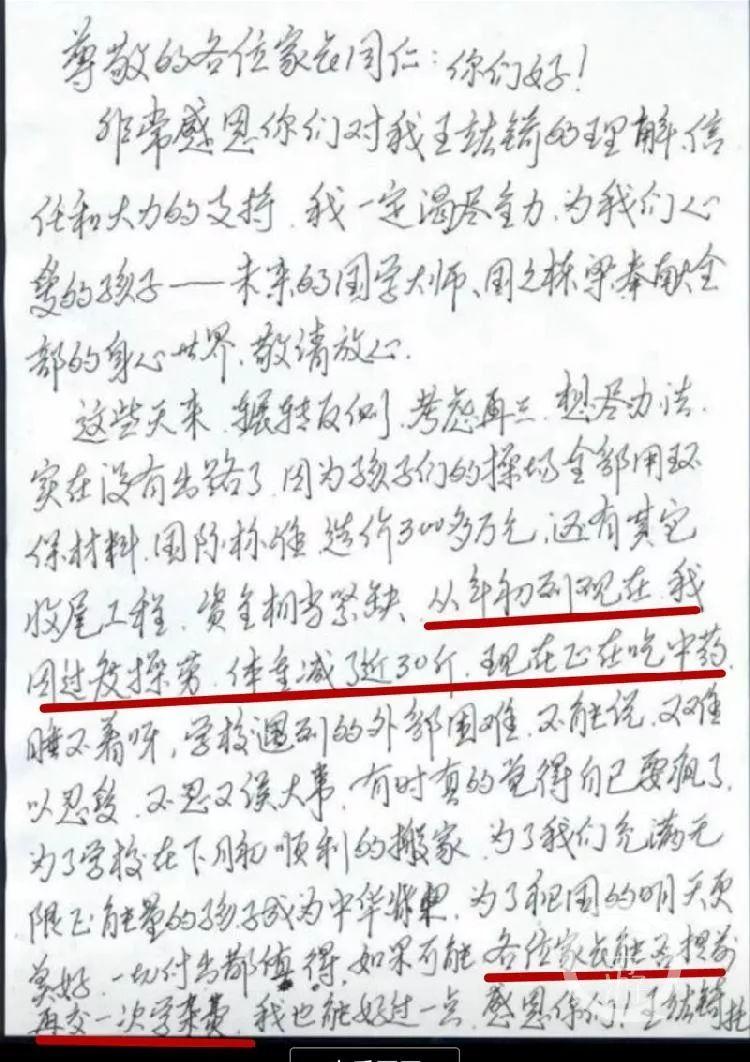 尊敬的各位家长同仁：你们好！
非常感恩你们对我王喆铸的理解、信
任和大力的支持，我一定竭尽全力，为我们心
爱的孩子——未来的国学大师、国之栋梁奉献全
部的身心世界，敬请放心。
这些天来，辗转反侧，考虑再三，想尽办法，
实在没有出路了，因为孩子们的操场全部用环
保材料，国际标准，造价300多万元，还有其它
收尾工程，资金相当紧缺，从年初到现在，我
因过度操劳，体重减了近30斤，现在正在吃中药，
睡不着呀，学校遇到的外部困难，不能说，又难
以忍受，不忍又误大事，有时真的觉得自己要疯了，
为了学校在下月初顺利的搬家，为了我们充满无
限正能量的孩子成为中华，为了祖国的明天更
美好，一切付出都值得，如果可能，各位家长能否提前
再交一次学杂费，我也能好过一点，感恩你们！王喆铸